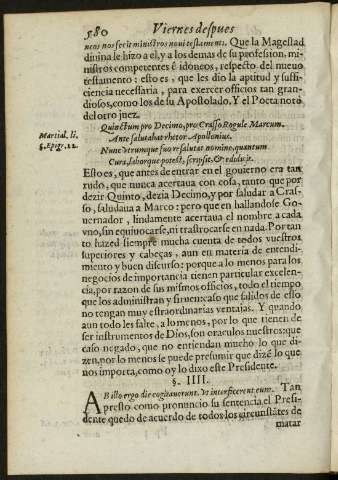 580 Viernes despues
neos nos fecit ministros noui testamenti. Que la Magestad
diuina le hizo a el, y a los demas de su profession, mi-
nistros competentes è idoneos, respecto del nueuo
testamento: esto es, que les dio la aptitud y suffi-
ciencia necessaria, para exercer officios tan gran-
diosos, como los de su Apostolado. Y el Poeta notó
del otro juez.
Martial. li.
5. Epig. 22.
Quinctum pro Decimo, pro Crasso Regule Marcum.
Ante salutabat rhetor Apollonius.
Nunc vtrumque suo resalutat nomine, quantum
Cura, laborque potest, scripsit, & edidicit.
Esto es, que antes de entrar en el gouierno era tan
rudo, que nunca acertaua con cosa, tanto que por
dezir Quinto, dezia Decimo, y por saludar a Cras-
so, saludaua a Marco: pero que en hallandose Go-
uernador, lindamente acertaua el nombre a cada
vno, sin equiuocarse, ni trastrocarse en nada. Por tan
to hazed siempre mucha cuenta de todos vuestros
superiores y cabeças, aun en materia de entendi-
miento y buen discurso: porque a lo menos para los
negocios de importancia tienen particular excelen-
cia, por razon de sus mismos officios, todo el tiempo
que los administran y siruen: caso que salidos de esso
no tengan muy estraordinarias ventajas. Y quando
aun todo les falte, a lo menos, por lo que tienen de
ser instrumentos de Dios, son oraculos nuestros: que
caso negado, que no entiendan mucho lo que di-
zen, por lo menos le puede presumir que dizē lo que
nos importa, como oy lo dixo este Presidente.
§. IIII.
AB illo ergo die cogitauerunt. Vt interficerent eum. Tan
presto como pronuncio su sentencia, el Presi-
dente quedo de acuerdo de todos los circunstātes de
matar